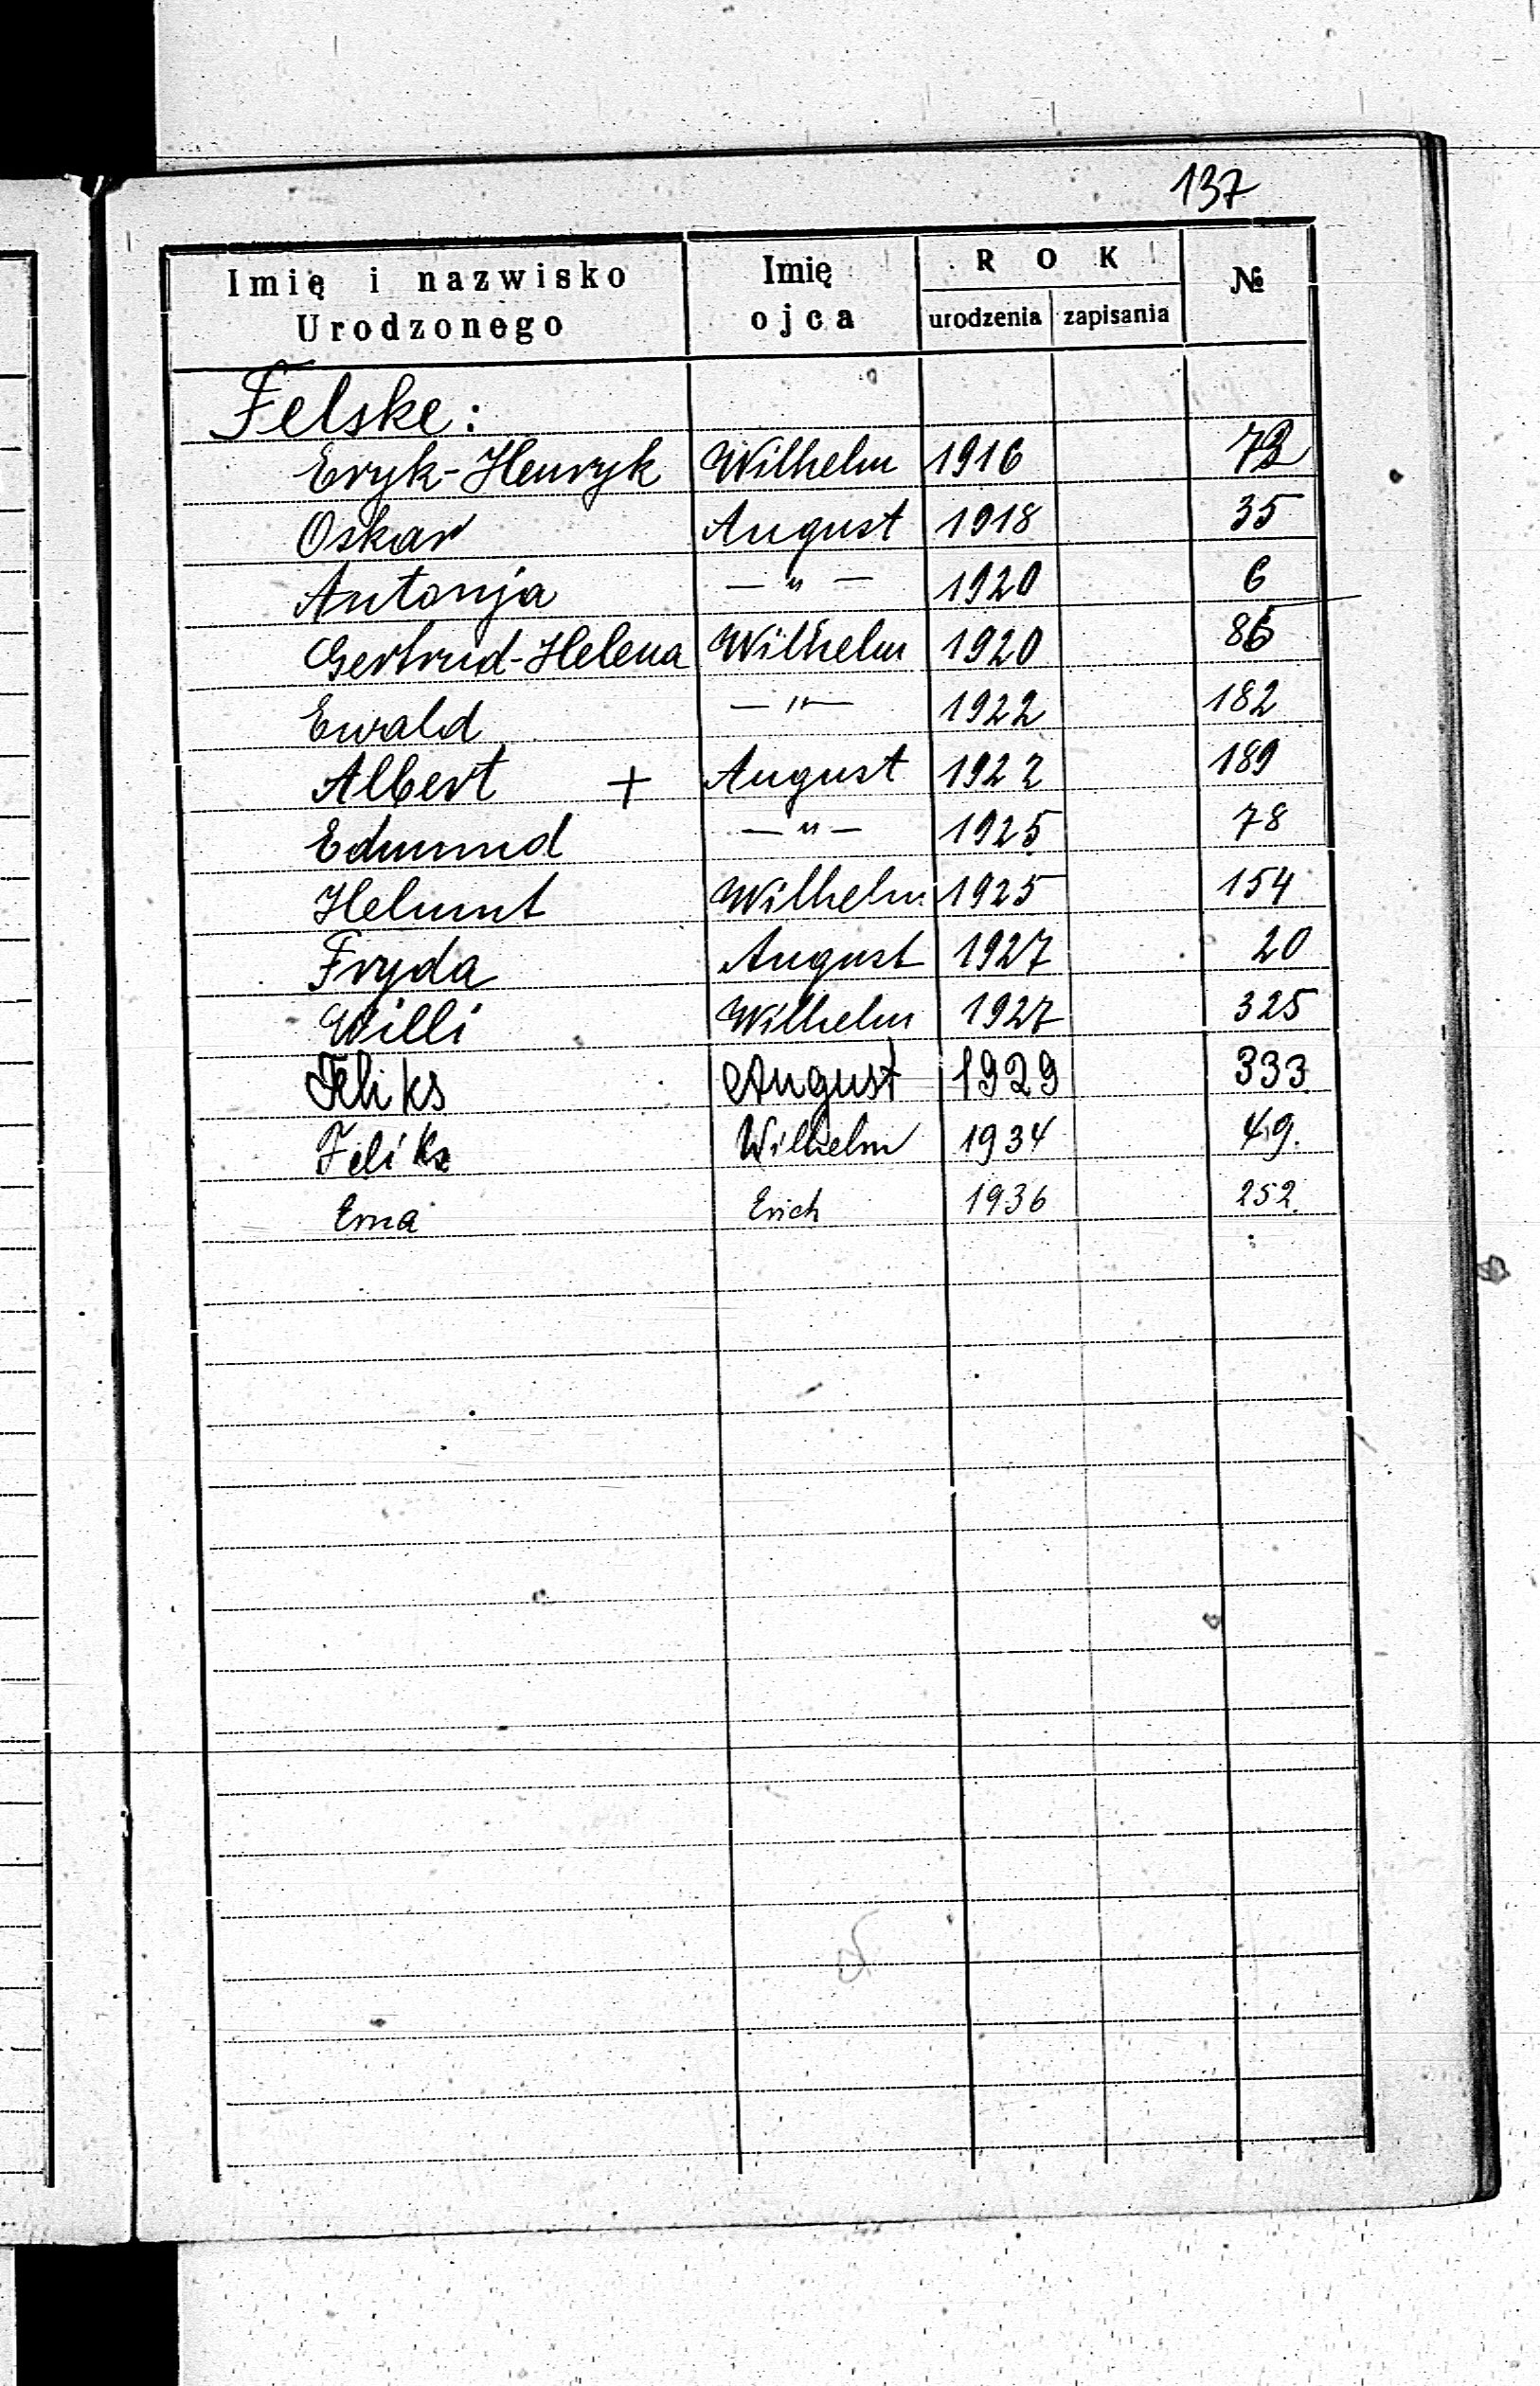 137
Imię i nazwisko Urodzonego Imię ojca ROK urodzenia zapisania №
Felske:
Eryk-Henryk Wilhelm 1916
Oskar August 1918 35
Antonja —"— 1920 6
Gertrud-Helena Wilhelm 1920 86
Ewald —"— 1922 182
Albert + August 1922 189
Edmund —"— 1925 78
Helmut Wilhelm 1925 154
Fryda August 1927 20
Willi Wilhelm 1927 325
Feliks August 1929 333
Feliks Wilhelm 1934 49.
Erna Erich 1936 252.